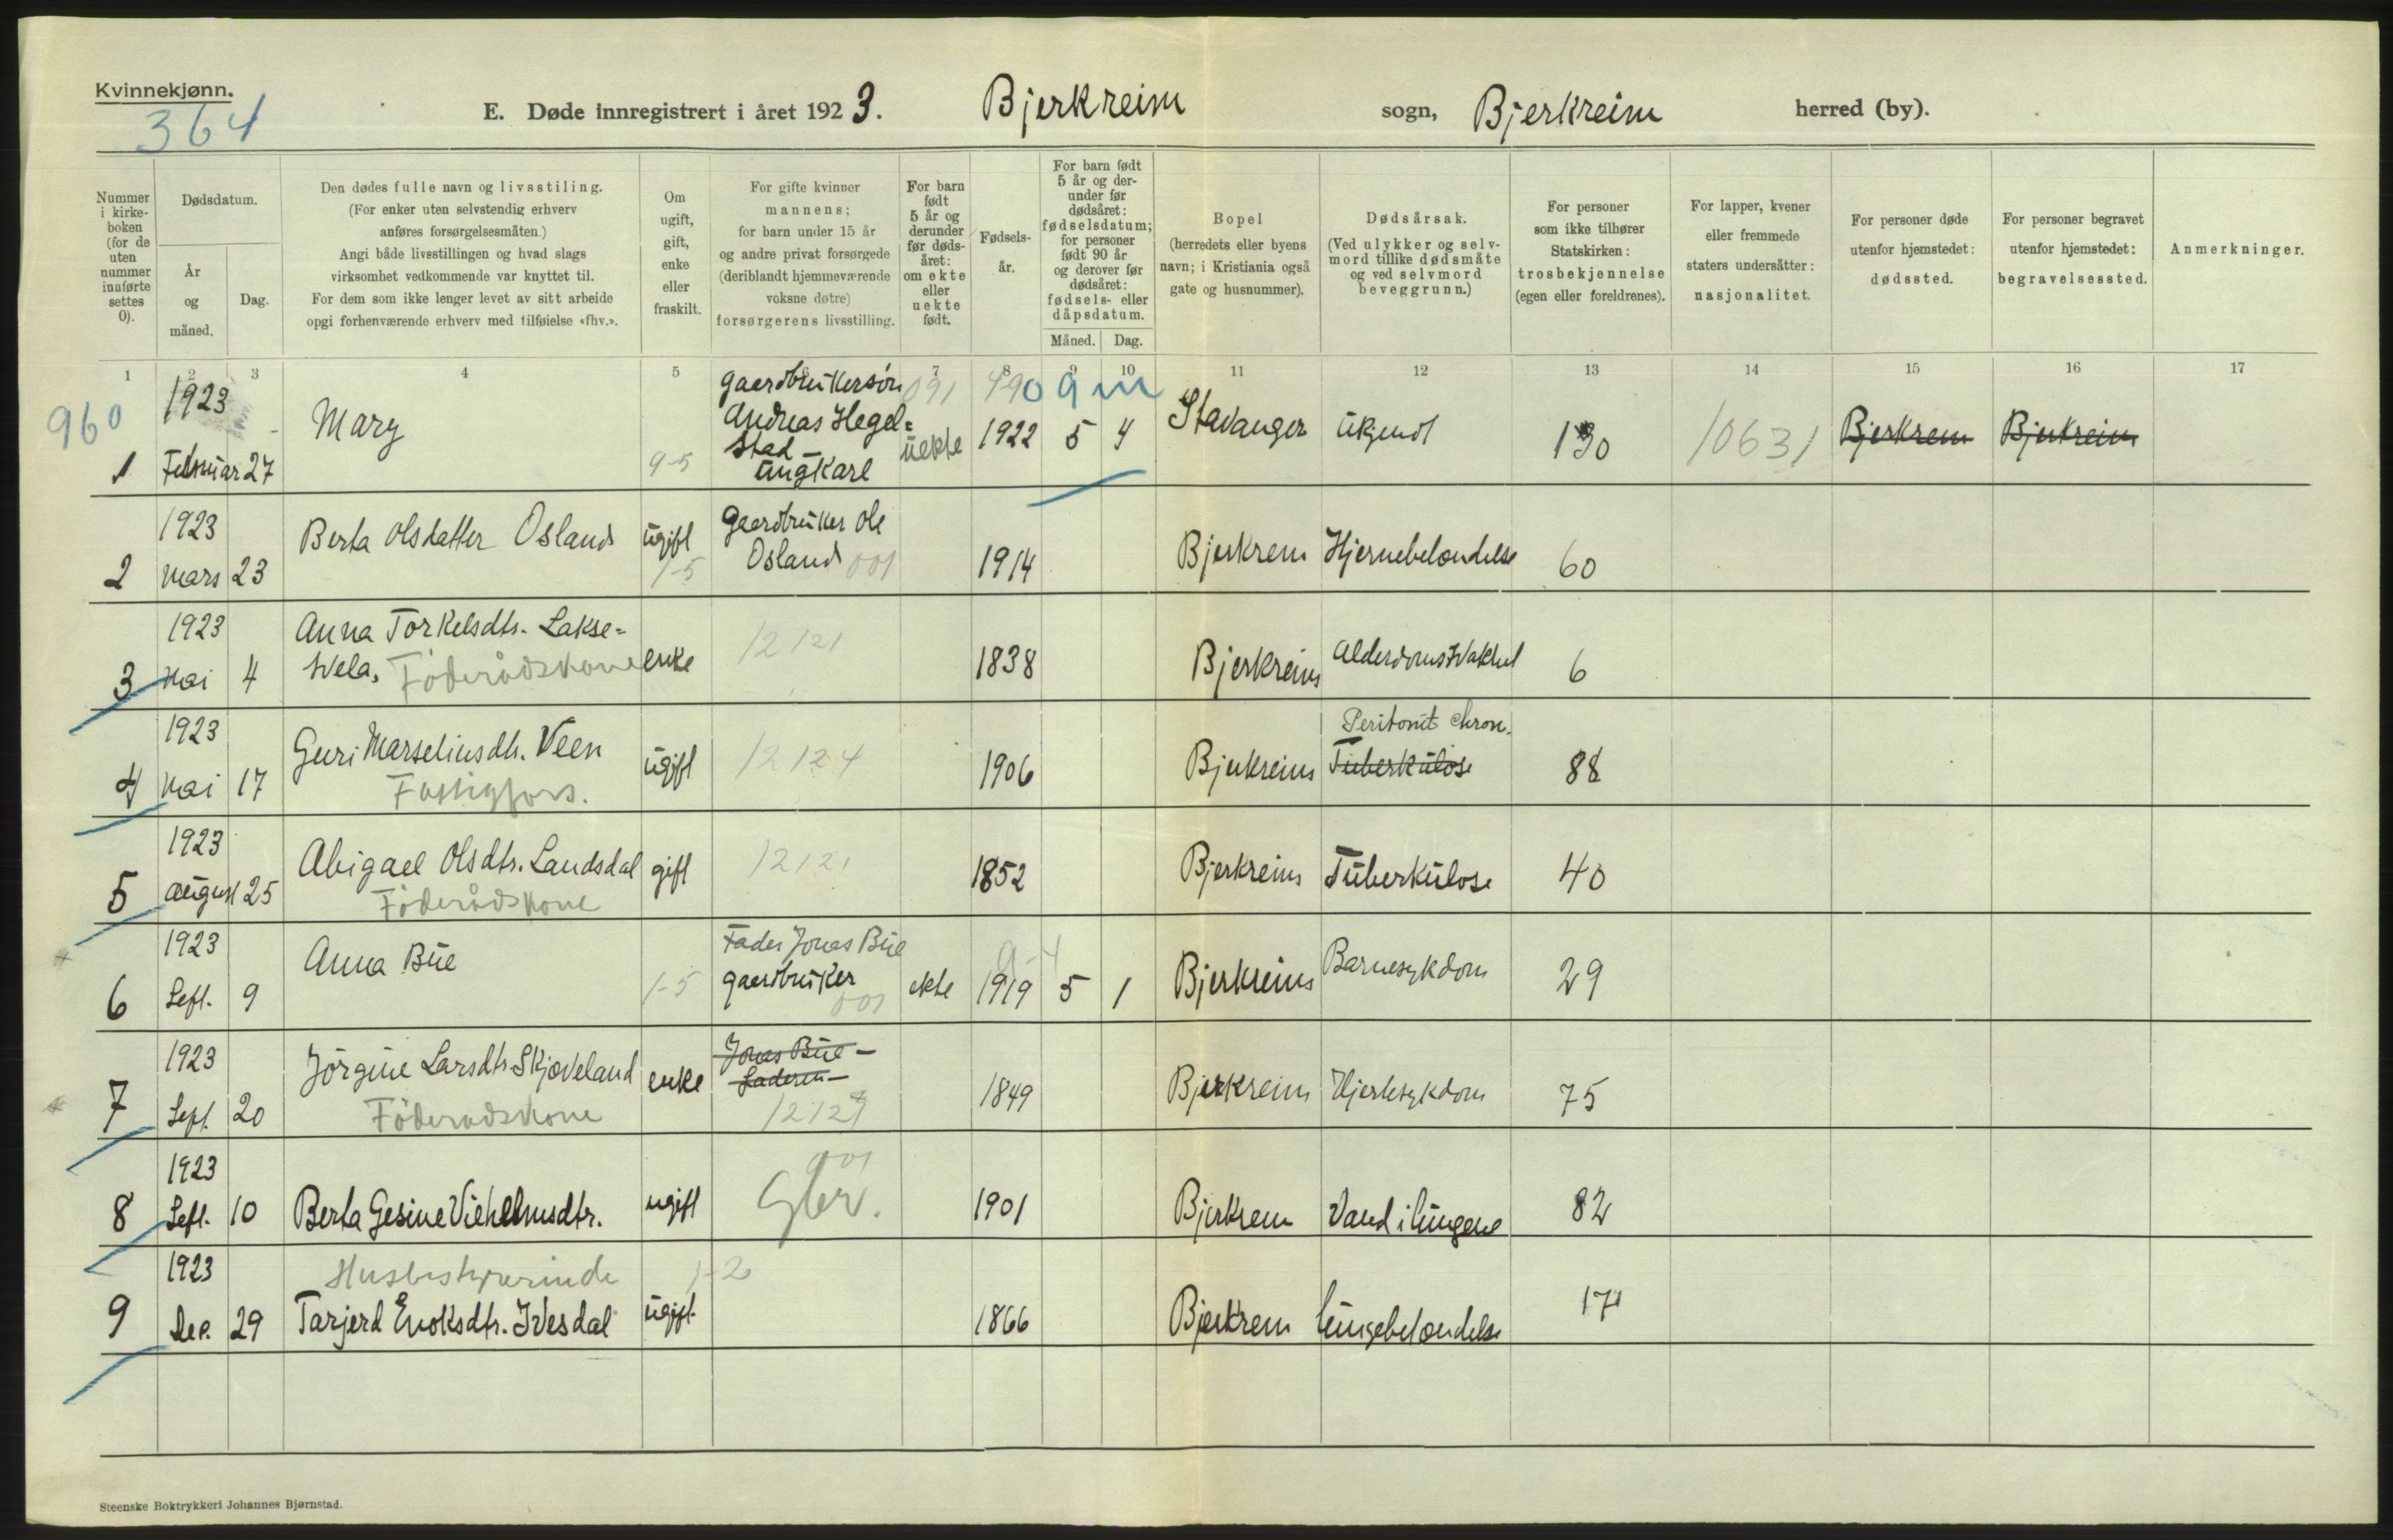 Kvinnekjønn.
364
E. Døde innregistrert i året 1923. Bjerkreim sogn, Bjerkreim herred (by).
Nummer i kirke-boken (for de uten nummer innførte settes 0).
Dødsdatum.
År og måned.
Dag.
Den dødes fulle navn og livsstiling.
(For enker uten selvstendig erhverv
anføres forsørgelsesmåten.)
Angi både livsstillingen og hvad slags
virksomhet vedkommende var knyttet til.
For dem som ikke lenger levet av sitt arbeide
opgi forhenværende erhverv med tilføielse «fhv.».
Om ugift, gift, enke eller fraskilt.
For gifte kvinner
mannens;
for barn under 15 år
og andre privat forsørgede
(deriblandt hjemmeværende
voksne døtre)
forsørgerens livsstilling.
For barn født 5 år og derunder før døds-året: om ekte eller uekte født.
Fødsels-år.
For barn født 5 år og der-under før dødsåret: fødselsdatum; for personer født 90 år og derover før dødsåret: fødsels- eller dåpsdatum.
Måned. Dag.
Bopel
(herredets eller byens
navn; i Kristiania også
gate og husnummer).
Dødsårsak.
(Ved ulykker og selv-
mord tillike dødsmåte
og ved selvmord
beveggrunn.)
For personer
som ikke tilhører
Statskirken:
trosbekjennelse
(egen eller foreldrenes).
For lapper, kvener
eller fremmede
staters undersåtter:
nasjonalitet.
For personer døde
utenfor hjemstedet:
dødssted.
For personer begravet
utenfor hjemstedet:
begravelsessted.
Anmerkninger.
1 2 3 4 5 6 7 8 9 10 11 12 13 14 15 16 17
960
1923
1 Februar 27 Mary 9-5
gaardbrukersøn
Andreas Hegel=
stad
ungkarl
091
uekte 1922 5 4 Stavanger ukjendt 130 10631 Bjerkrem Bjerkreim
1923
2 mars 23 Berta Olsdatter Osland ugift 1-5
Gaardbruker Ole
Osland 001
1914 Bjerkrem Hjernebetændelse 60
1923
3 Mai 4 Anna Torkelsdtr. Lakse=
svela, Föderådskone enke 12121 1838 Bjerkreim Alderdomssvakhet 6
1923
4 Mai 17 Guri Marseliusdtr. Veen
Fattigfors.
ugift 12124 1906 Bjerkreim Peritonit chron.
Tuberkulose 88
1923
5 August 25 Abigael Olsdtr. Landsdal
Föderådskone
gift 12121 1852 Bjerkreim Tuberkulose 40
1923
6 Sept. 9 Anna Bue 1-5
Fader Jonas Bue
gaardbruker
001
ekte 1919 5 1 Bjerkreim Barnesykdom 29
1923
7 Sept. 20 Jörgine Larsdtr Skjæveland
Föderadskone
enke Jonas Bue -
1849 Bjerkreim Hjertesykdom 75
1923
8 Sept. 10 Berta Gesine Vilhelmsdtr. ugift 001
Gbr.
1901 Bjerkrem Vand i lungene 82
1923
Husbestyrerinde 1-2
9 Des. 29 Tarjerd Enoksdtr. Ivesdal ugift 1866 Bjerkrem lungebetændelse 171
Steenske Boktrykkeri Johannes Bjørnstad.